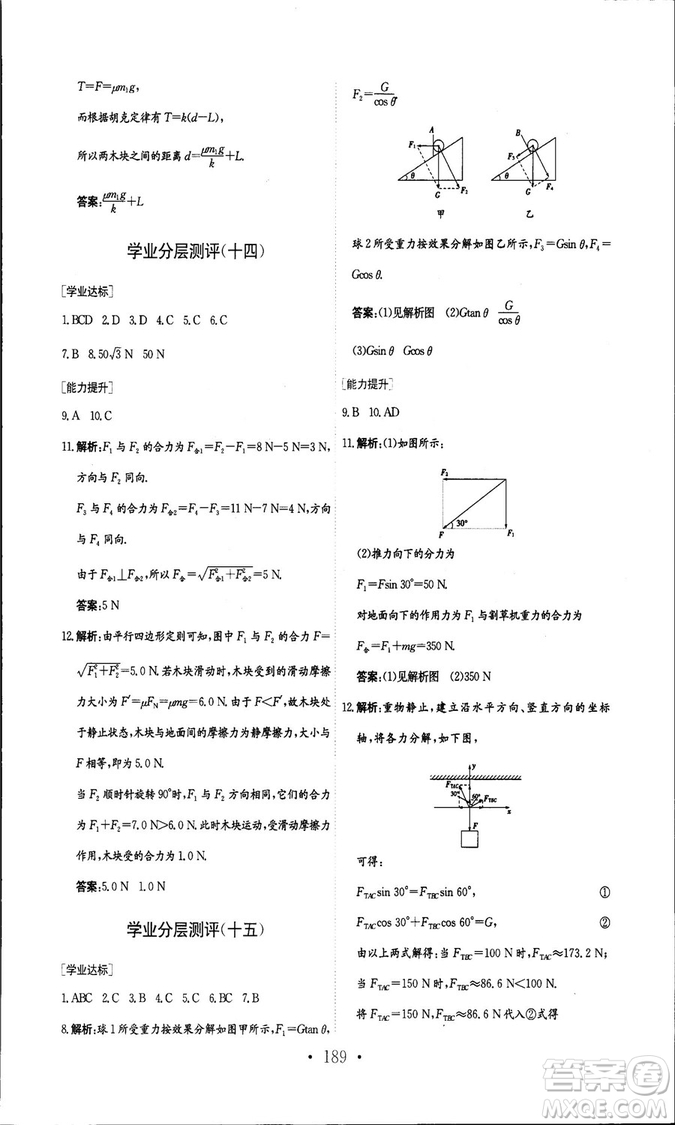 T=F=μm₁g,
而根据胡克定律有 T=k(d−L),
所以两木块之间的距离 d=μm₁g/k+L.
答案:μm₁g/k+L
学业分层测评(十四)
[学业达标]
1.BCD 2.D 3.D 4.C 5.C 6.C
7.B 8.50√3 N 50 N
[能力提升]
9.A 10.C
11.解析:F₁ 与 F₂ 的合力为 F合1=F₂−F₁=8 N−5 N=3 N,
方向与 F₂ 同向.
F₃ 与 F₄ 的合力为 F合2=F₄−F₃=11 N−7 N=4 N,方向与 F₄ 同向.
由于 F合1⊥F合2,所以 F合=√(F²合1+F²合2)=5 N.
答案:5 N
12.解析:由平行四边形定则可知,图中 F₁ 与 F₂ 的合力 F=
√(F₁²+F₂²)=5.0 N.若木块滑动时,木块受到的滑动摩擦
力大小为 F′=μFN=μmg=6.0 N.由于 F<F′,故木块处
于静止状态,木块与地面间的摩擦力为静摩擦力,大小与
F 相等,即为 5.0 N.
当 F₂ 顺时针旋转 90°时,F₁ 与 F₂ 方向相同.它们的合力
为 F₁+F₂=7.0 N>6.0 N.此时木块运动,受滑动摩擦力
作用,木块受的合力为 1.0 N.
答案:5.0 N 1.0 N
学业分层测评(十五)
[学业达标]
1.ABC 2.C 3.D 4.D 5.B 6.BC 7.B
8.解析:球 1 所受重力按效果分解如图甲所示,F₁=Gtan θ,
F₂=G/cos θ.
A
F₁
θ
G
F₂
甲
B
F₃
θ
G
F₄
乙
球 2 所受重力按效果分解如图乙所示,F₃=Gsin θ,F₄=
Gcos θ.
答案:(1)见解析图 (2)Gtan θ G/cos θ
(3)Gsin θ Gcos θ
[能力提升]
9.B 10.AD
11.解析:(1)如图所示:
F₂
F
30°
F₁
(2)推力向下的分力为
F₁=Fsin 30°=50 N.
对地面向下的作用力为 F₁ 与割草机重力的合力为
F合=F₁+mg=350 N.
答案:(1)见解析图 (2)350 N
12.解析:重物静止,建立沿水平方向、竖直方向的坐标
轴,将各力分解,如下图,
y
FTAC
30°
60°
FTBC
x
F
可得:
FTACsin 30°=FTBCsin 60°, ①
FTACcos 30°+FTBCcos 60°=G, ②
由以上两式解得:当 FTBC=100 N时,FTAC≈173.2 N;
当 FTAC=150 N时,FTBC≈86.6 N<100 N.
将 FTAC=150 N,FTBC≈86.6 N代入②式得
· 189 ·
答案圈
MXQE.COM